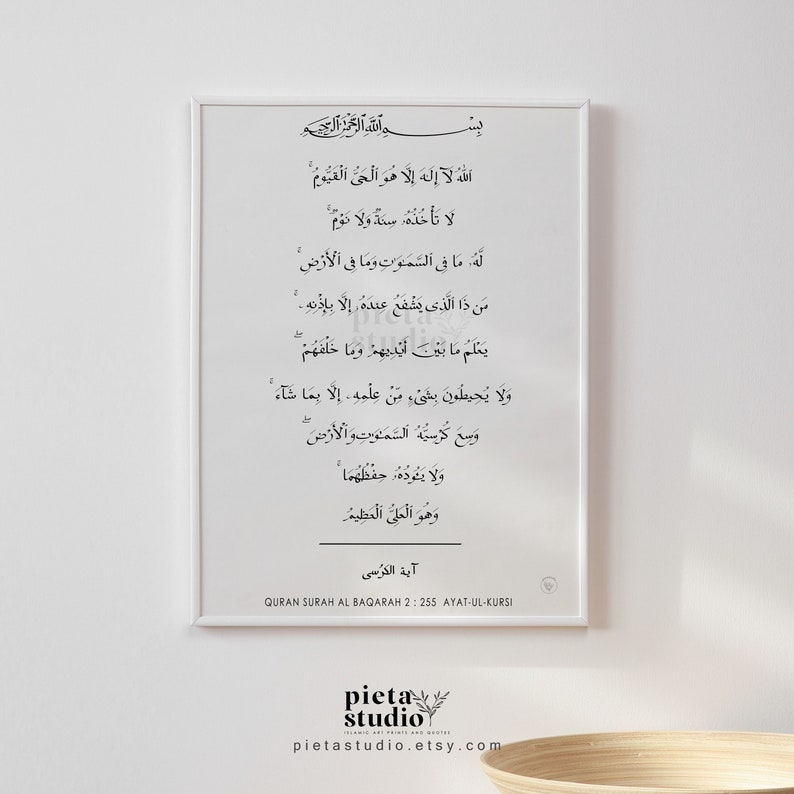 بِسْمِ ٱللَّهِ ٱلرَّحْمَٰنِ ٱلرَّحِيمِ
ٱللَّهُ لَآ إِلَٰهَ إِلَّا هُوَ ٱلْحَىُّ ٱلْقَيُّومُ ۚ
لَا تَأْخُذُهُۥ سِنَةٌ وَلَا نَوْمٌ ۚ
لَّهُۥ مَا فِى ٱلسَّمَٰوَٰتِ وَمَا فِى ٱلْأَرْضِ ۚ
مَن ذَا ٱلَّذِى يَشْفَعُ عِندَهُۥٓ إِلَّا بِإِذْنِهِۦ ۚ
يَعْلَمُ مَا بَيْنَ أَيْدِيهِمْ وَمَا خَلْفَهُمْ ۖ
وَلَا يُحِيطُونَ بِشَىْءٍ مِّنْ عِلْمِهِۦٓ إِلَّا بِمَا شَآءَ ۚ
وَسِعَ كُرْسِيُّهُ ٱلسَّمَٰوَٰتِ وَٱلْأَرْضَ ۖ
وَلَا يَـُٔودُهُۥ حِفْظُهُمَا ۚ
وَهُوَ ٱلْعَلِىُّ ٱلْعَظِيمُ
آية الكرسى
QURAN SURAH AL BAQARAH 2 : 255 AYAT-UL-KURSI
pieta
studio
pieta
studio
ISLAMIC ART PRINTS AND QUOTES
pietastudio.etsy.com